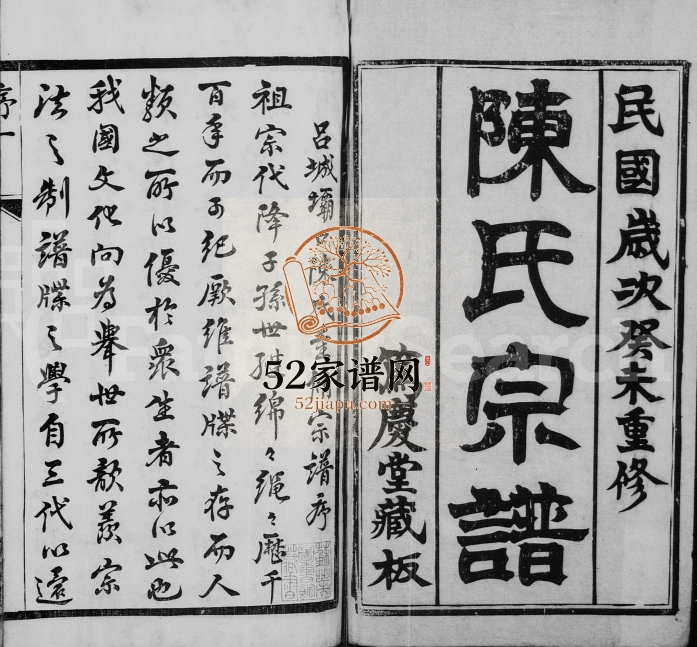 民國歲次癸未重修
陳氏宗譜
慶堂藏板
呂城壩口陳氏重修宗譜序
祖宗代降子孫世繼綿々繩々歷千
百年而可紀厥維譜牒之存而人
類之所以優於衆生者亦以此也
我國文化向為舉世所歆羨宗
法之制譜牒之學自三代以還
序一
52家谱网
52jiapu.com